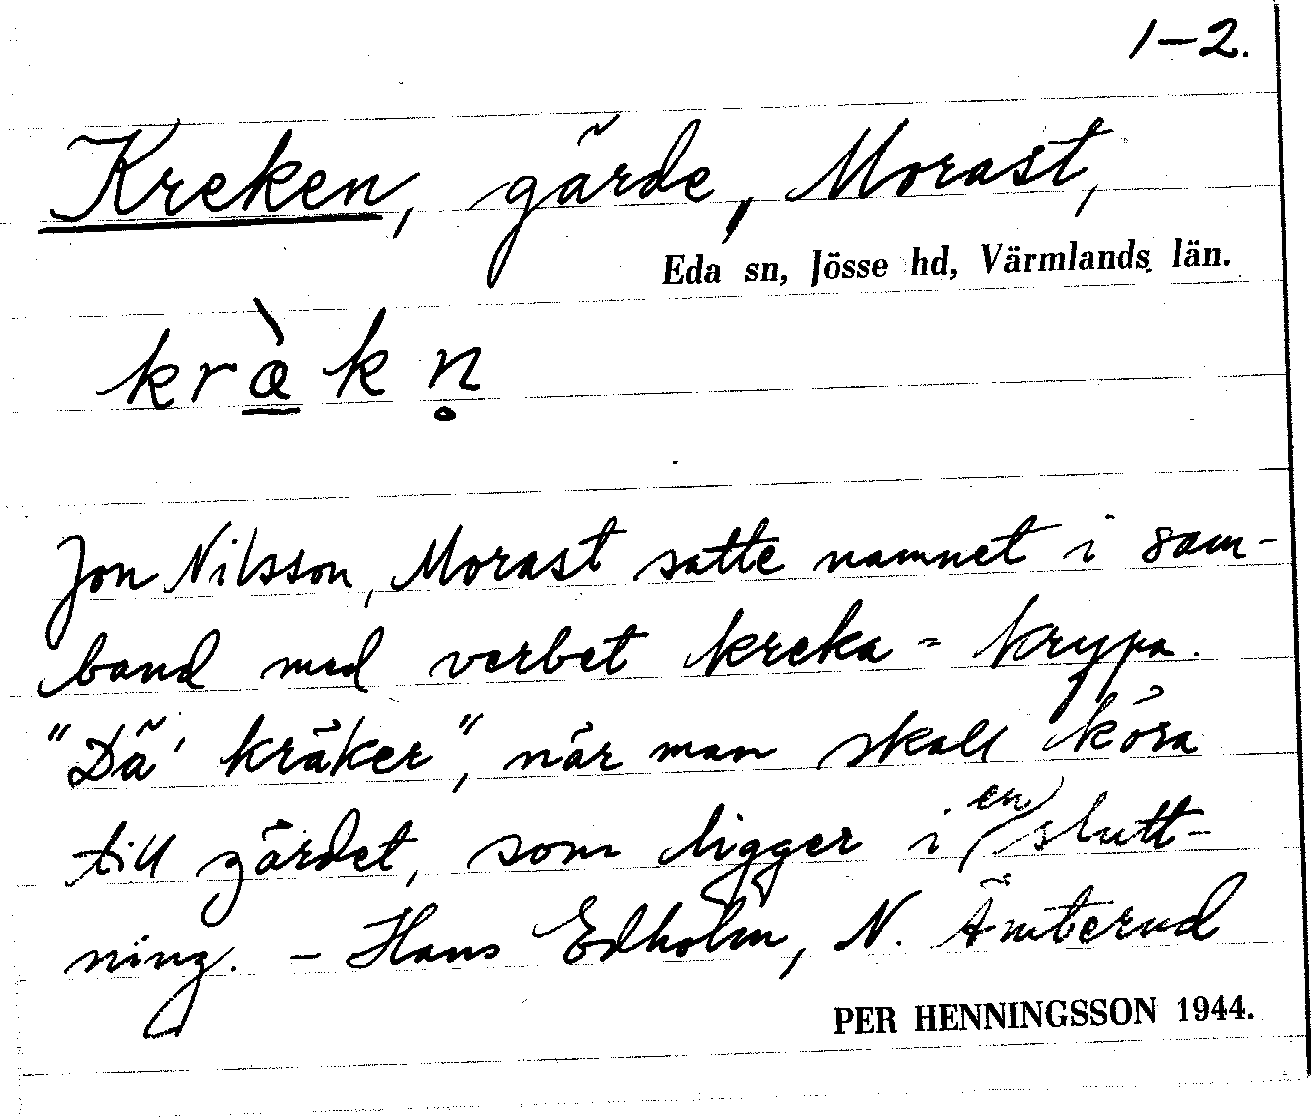 1-2.
Kreken, gärde, Morast,
Eda sn, Jösse hd, Värmlands län.
kræ̀kn̥
Jon Nilsson, Morast satte namnet i sam-
band med verbet kreka = krypa.
"Dä' kräker", när man skall köra
till gärdet, som ligger i en slutt-
ning. - Hans Edholm, N. Ämterud
PER HENNINGSSON 1944.